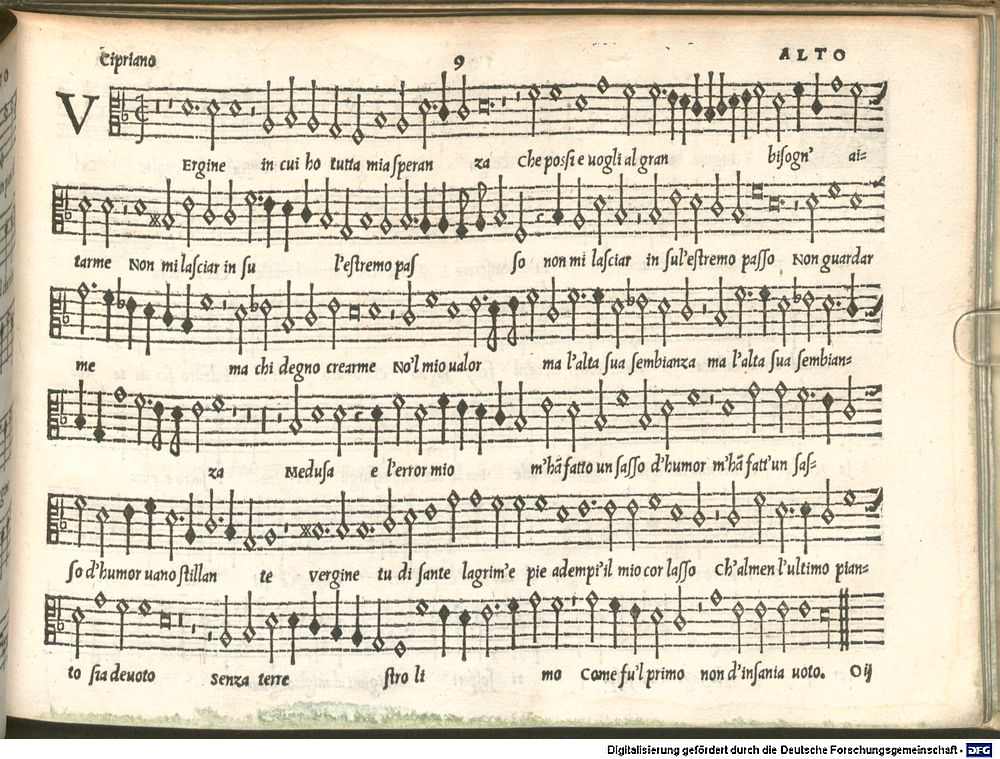 Cipriano 9 ALTO
V
Ergine in cui ho tutta mia speran za Che possi e uogli al gran bisogn' ai=
tarme Non mi lasciar in su l'estremo pas so non mi lasciar in sul'estremo passo Non guardar
me ma chi degno crearme No'l mio ualor ma l'alta sua sembianza ma l'alta sua sembian=
za Medusa e l'error mio m'hã fatto un sasso d'humor m'hã fatt'un sas=
so d'humor uano stillan te vergine tu di sante lagrim'e pie adempi'il mio cor lasso Ch'almen l'ultimo pian=
to sia deuoto senza terre stro li mo Come fu'l primo non d'insania uoto. O ij
Digitalisierung gefördert durch die Deutsche Forschungsgemeinschaft - DFG